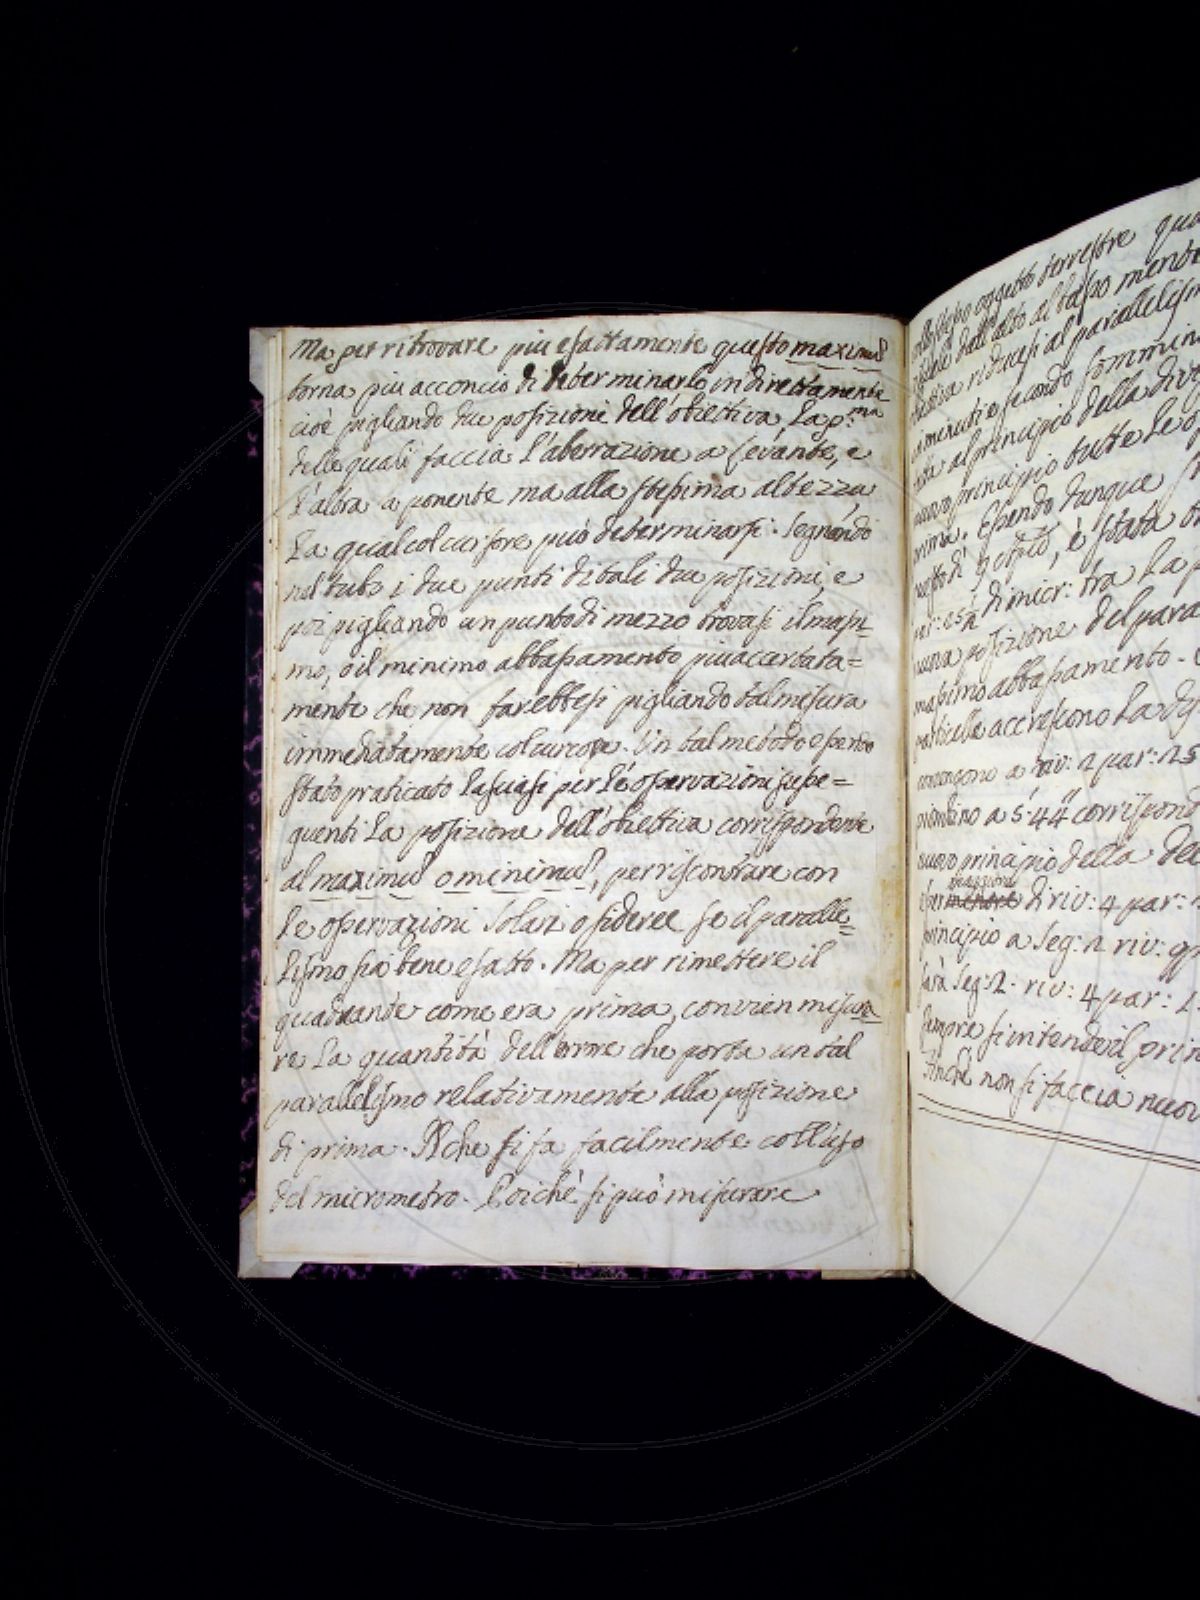 Ma per ritrovare piu esattamente questo maximũ
torna piu acconcio di determinarlo indirettamente
cioè pigliando due posizioni dell'obiettiva, La p:ma
delle quali faccia l'aberrazione a Levante, e
l'altra a ponente ma alla stessima altezza,
La qual col cursore può determinarsi. Segnando
nel tubo i due punti di tali due posizioni, e
poi pigliando un punto di mezzo trovasi il massi-
mo, o il minimo abbassamento piu accertata=
mente che non farebbesi pigliando tal mesura
immediatamente col cursore. Un tal metodo essendo
stato praticato lasciasi per le osservazioni susse=
guenti La posizione dell'obiettiva corrispondente
al maximũ o minimũ, per riscontrare con
le osservazioni Solari o sideree se il paralle=
lismo sia bene esatto. Ma per rimettere il
quadrante come era prima, convien misura
re La quantità dell'errore che porta un tal
parallelismo relativamente alla posizione
di prima. Il che si fa facilmente coll'uso
del micrometro. Poichè si può misurare
collo stesso oggetto terrestre qua
dall'alto al basso mento
ettiva riducesi al parallelism
i minuti e secondi sommini
al principio della div
nuovo principio tutte le o
prima. Essendo dunque
è stata
di micr: tra La p
nuna posizione del para
massimo abbassamento.
particelle accrescono La di
convengono a riv: 2 par: 25
piombino a 5'44" corrispond
nuovo principio della
maggiore
esser menore di riv: 4 par:
principio a seg: 2 riv:
sarà seg: 2. riv: 4 par: 1
sempre s'intende il prin
finchè non si faccia nuov